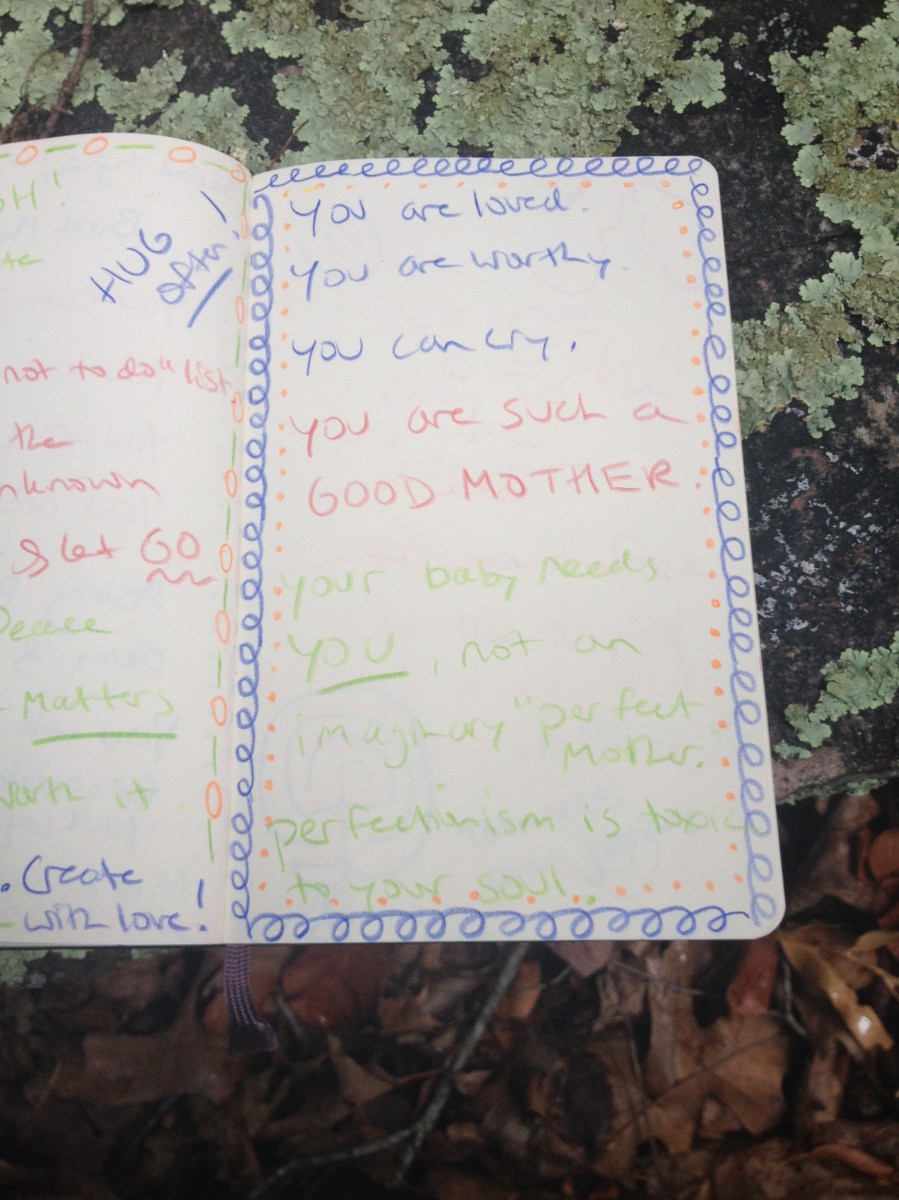 HUG
often!
not to do" list.
the
& let GO
Peace
matters
it
. Create
- with love!
you are loved.
you are worthy.
you can cry.
you are such a
GOOD MOTHER.
your baby needs
you, not an
imaginary "perfect
mother."
perfectionism is toxic
to your soul.